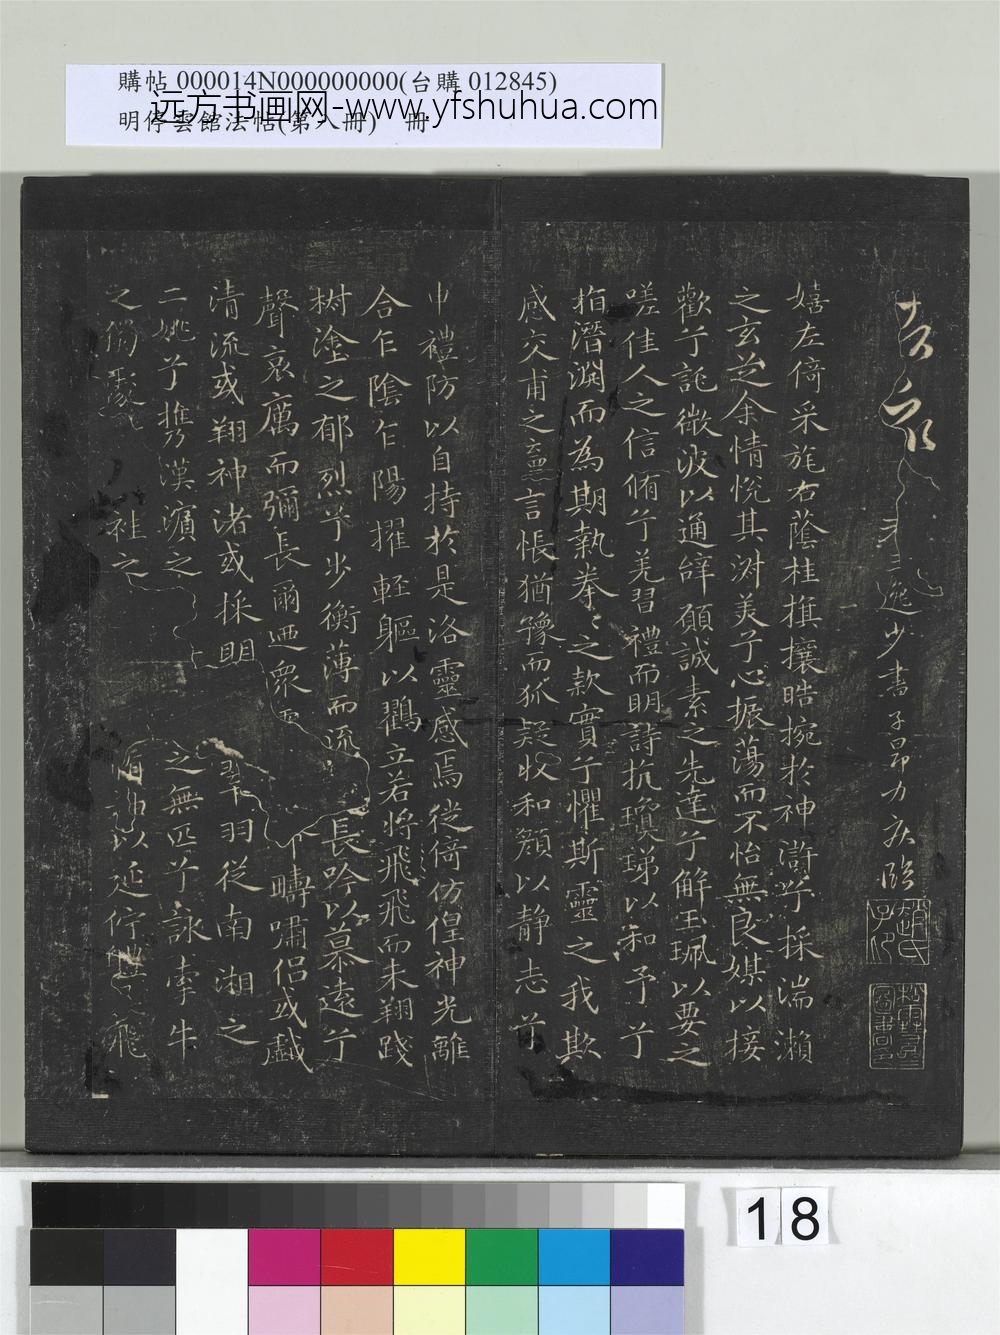 購帖 000014N000000000(台購 012845)
明停雲館法帖(第八冊) 冊
远方书画网-www.yfshuhua.com
逸少書 子昂力疾臨
趙氏子昂
松雪齋圖書印
嬉左倚采旄右蔭桂旗攘皓捥於神滸兮採湍瀨
之玄芝余情悅其淑美兮心振蕩而不怡無良媒以接
歡兮託微波以通辭碩誠素之先達兮解玉珮以要之
嗟佳人之信脩兮羌習禮而明詩抗瓊珶以和予兮
指潛淵而為期執拳〻之款實兮懼斯靈之我欺
感交甫之言悵猶豫而狐疑收和顏以静志兮
申禮防以自持於是洛靈感焉徙倚仿偟神光離
合乍陰乍陽擢輕軀以鸖立若將飛飛而未翔踐
樹塗之郁烈兮步衡薄而流長吟以慕遠兮
聲哀厲而彌長爾迺眾疇嘯侶或戲
清流或翔神渚或採明翠羽從南湘之
二姚兮攜漢濱之之無匹兮詠牽牛
之袿之以延佇飛